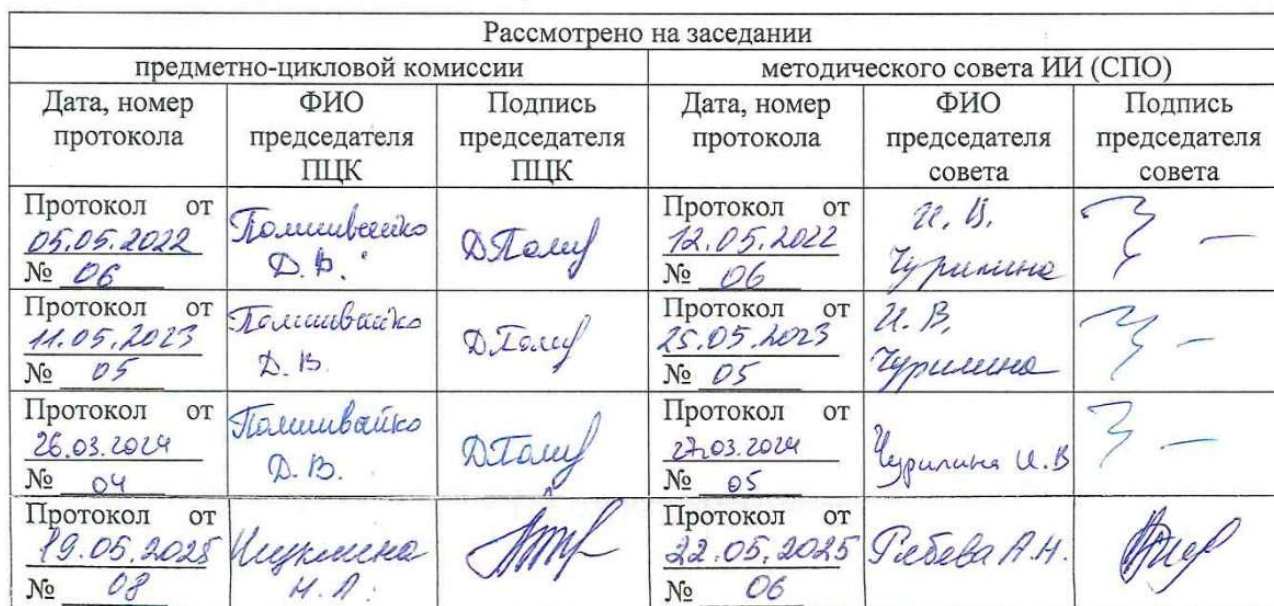 Рассмотрено на заседании
предметно-цикловой комиссии методического совета ИИ (СПО)
Дата, номер протокола ФИО председателя ПЦК Подпись председателя ПЦК Дата, номер протокола ФИО председателя совета Подпись председателя совета
Протокол от
05.05.2022
№ 06
Д. В.
Протокол от
12.05.2022
№ 06
И. В.
Чурилина
Протокол от
11.05.2023
№ 05
Д. В.
Протокол от
25.05.2023
№ 05
И. В.
Чурилина
Протокол от
26.03.2024
№ 04
Д. В.
Протокол от
27.03.2024
№ 05
Чурилина И. В
Протокол от
19.05.2025
№ 08
Протокол от
22.05.2025
№ 06
А.Н.